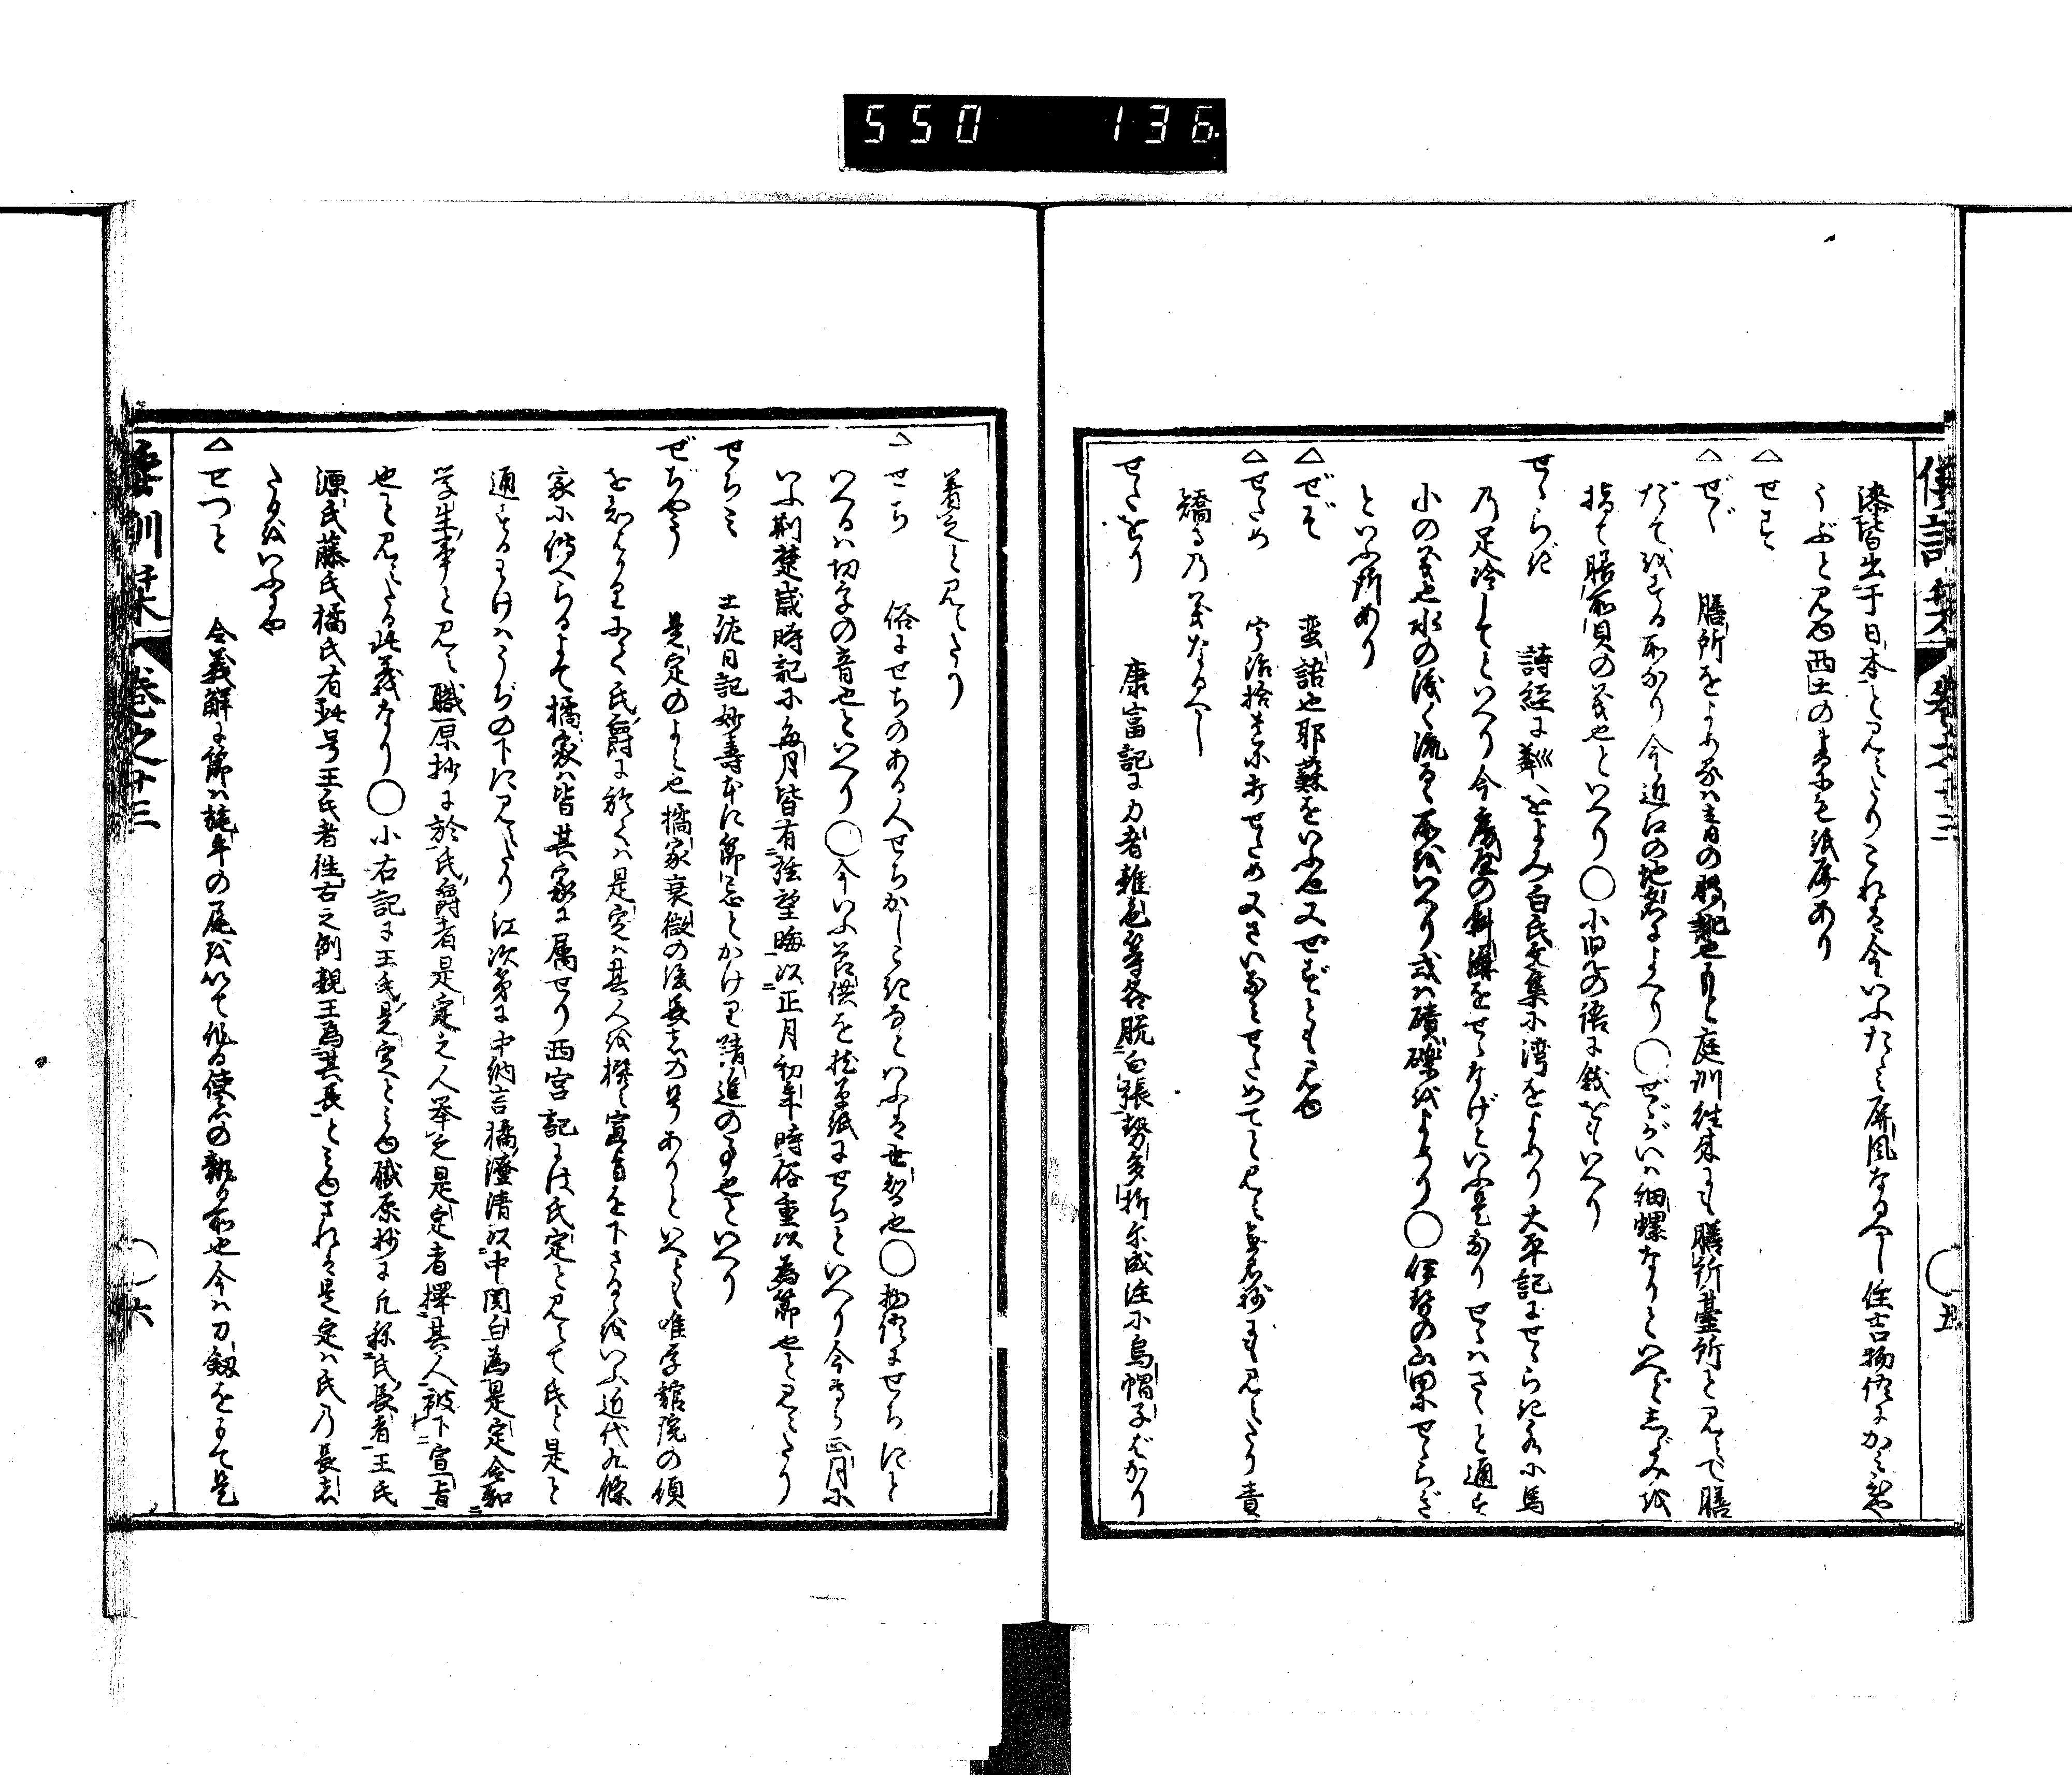 550 136
漆皆出于日本と見えたりこれは今いふたゝみ屏風なるべし住吉物語にかみびや
うぶと見ゆ西土の書にも紙屏あり
△せこ
△ぜゞ 膳所をよめるは
庭訓往来にも膳所臺所と見えて膳
だてをする所なり今近江の地名によべり○ぜゞがひは細螺なりといへどしゞみを
指て膳所貝の義也といへり○小児の語に銭をもいへり
せゝらぎ 詩経に
をよみ白氏文集に湾をよめり太平記にせゝらぎ水に馬
乃足冷してといへり今
をせゝなげといふ是なりせゝはさゝと通ず
小の義也水の浅く流るゝ所をいへり或は磧礫をよめり○伊勢の山田にせゝらぎ
といふ所あり
△ぜぞ 蛮語也耶蘇をいふ也又ぜずとも見ゆ
△せため 宇治拾遺に
せため又さいなみせためてと見え
にも見えたり責
矯る乃義なるべし
せたをり 康富記に力者雑色等各脱白張勢多折尓成注小烏帽子ばかり
倭訓栞 巻之十三 ○五
着之と見えたり
△せち 俗にせちのある人せちかしこきなといふは世智也○物語にせちにと
いへるは切字の音也といへり○今いふ節供を枕草紙にせちといへり今専ら正月に
いふ荊楚歳時記に毎月皆有弦望晦以正月初年時俗重以為節也と見えたり
せちみ 土佐日記妙寿本に節忌とかけり精進の事也といへり
ぜぢやう 是定のよみ也橘家衰微の後長者の号ありといへとも唯学館院の領
を知るはかりにて氏爵に於ては是定は其人を擇み宣旨を下さるゝをいふ近代九條
家に傳へらるよて橘家は皆其家に属せり西宮記には氏定と見えて氏と是と
通するわけはうぢの下に見えたり江次第に中納言橘澄清以中関白為是定令勘
学生事と見え職原抄に於氏爵者是定之人挙之是定者擇其人被下宣旨
也と見えたる此義なり○小右記に王氏是定とみゆ職原抄に凡称氏長者王氏
源氏藤氏橘氏有此号王氏者往古之例親王為其長とみゆされは是定は氏乃長者
たるをいふにや
△せつと 令義解に節は旄牛の尾を以て作る使者の執る所也今は刀剱をもて是
倭訓栞 巻之十三 ○六